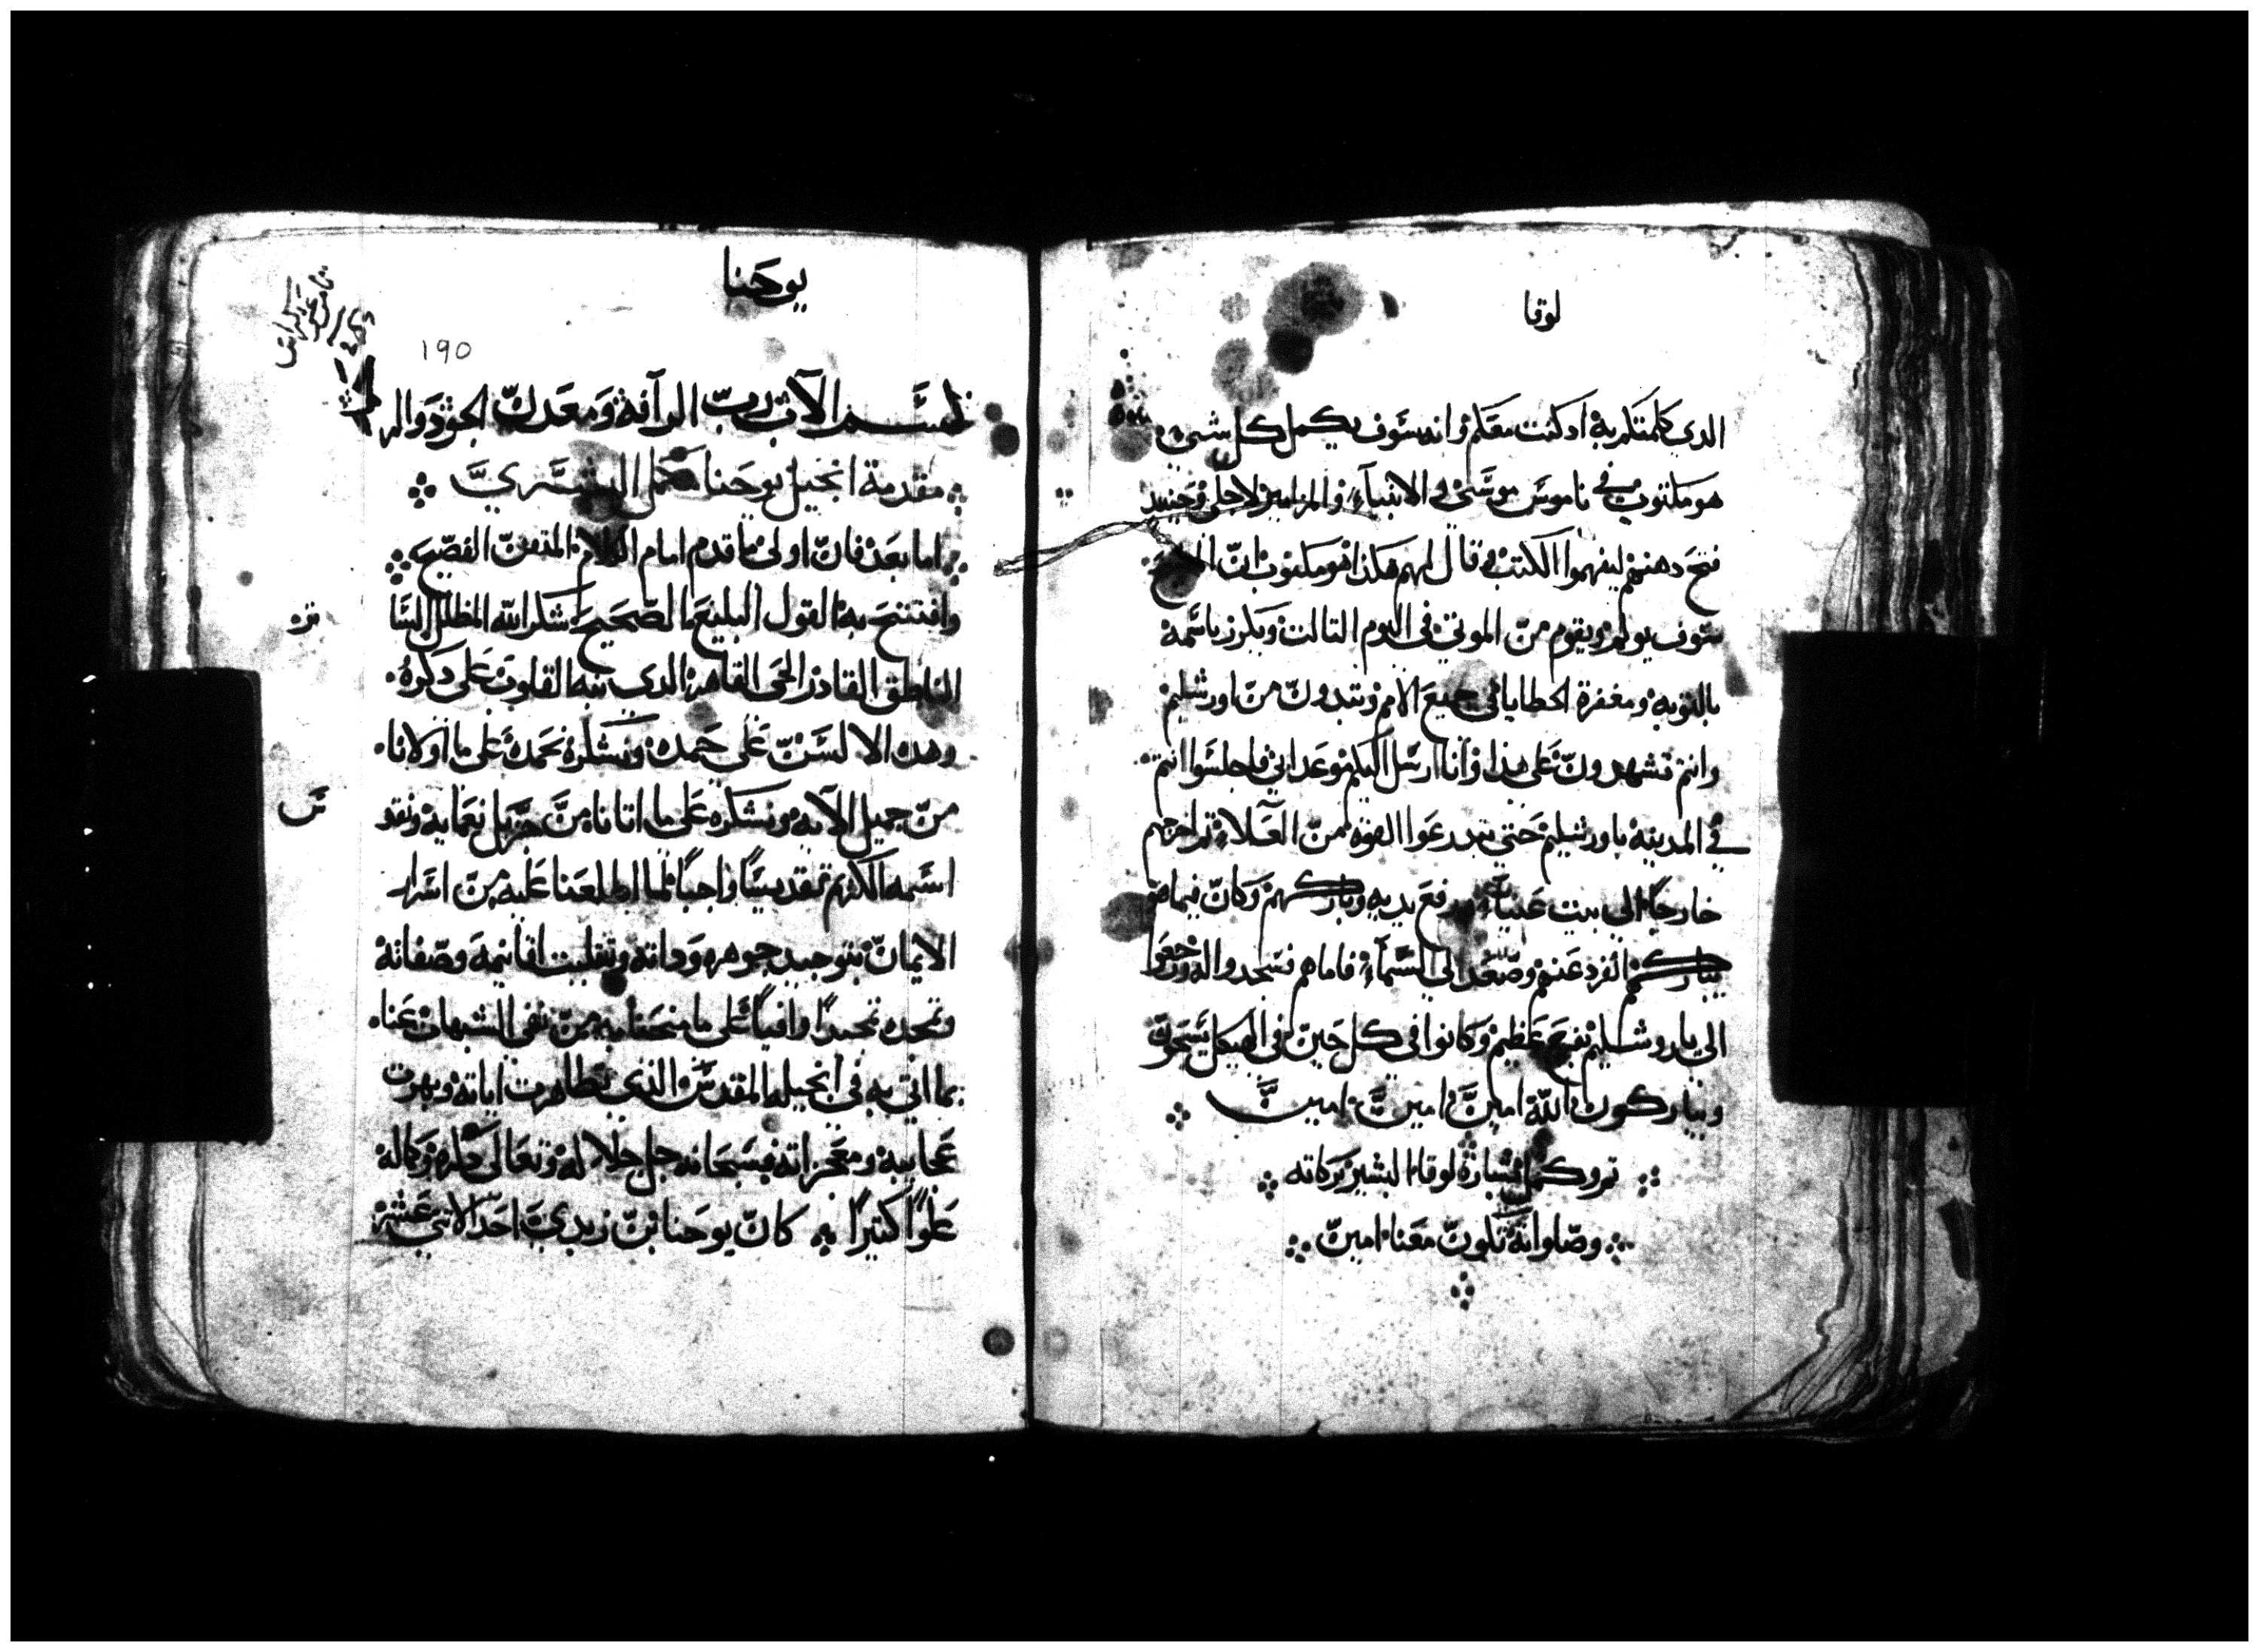 لوقا
الدي كلمتكم به اد كنت معكم وانه سوف يكمل كل شي
هو مكتوب في ناموس موسى والانبياء والمزامير لاجلي وحينيد
فتح دهنهم ليفهموا الكتب وقال لهم هكذا هو مكتوب ان المسيح
سوف يولم ويقوم من الموتى في اليوم التالت ويكرز باسمه
بالتوبه ومغفرة الخطايا في جميع الامم وتبدون من اورشليم
وانتم تشهدون على هذا وانا ارسل اليكم موعد ابي فاجلسوا انتم
في المدينه باورشليم حتي تتدرعوا القوه من العلاء تم اخرجهم
خارجا الى بيت عنيا ورفع يديه وباركهم وكان فيما هو
يباركهم انفرد عنهم وصعد الى السماء فاما هم فسجدوا له ورجعوا
الى ياروشليم بفرح عظيم وكانوا في كل حين في الهيكل يسبحون
ويباركون الله امين امين امين
تم وكمل بشارة لوقا البشير بركاته
وصلواته تكون معنا امين
يوحنا
190
بسم الاب رب الرافة ومعدن الجود والر
مقدمة انجيل يوحنا البشري
اما بعد فان اولى ما قدم امام الكلام المتقن الفصيح
وافتتح به القول البليغ الصحيح شكر الله المظلل السا
الناطق القادر الحي القاهر الدي نبه القلوب على دكره
وهده الالسن على حمده ونشكره نحمده على ما اولانا
من جميل الآيه ونشكره على ما اتانا من جزيل نعمايه ونقد
اسمه الاكرم تقديسا واجبا لما اطلعنا عليه من اسرار
الايمان بتوحيد جوهره وداته وتتليت اقانيمه وصفاته
ونمجده تمجيدا وافيا على ما منحنا به من نفي الشبهات عنا
بما اتي به في انجيله المقدس الذي تظاهرت اياته وبهرت
عجايبه ومعجزاته فسبحانه جل جلاله وتعالى وكماله
علوا كتيرا كان يوحنا بن زبدي احد الاتني عشر